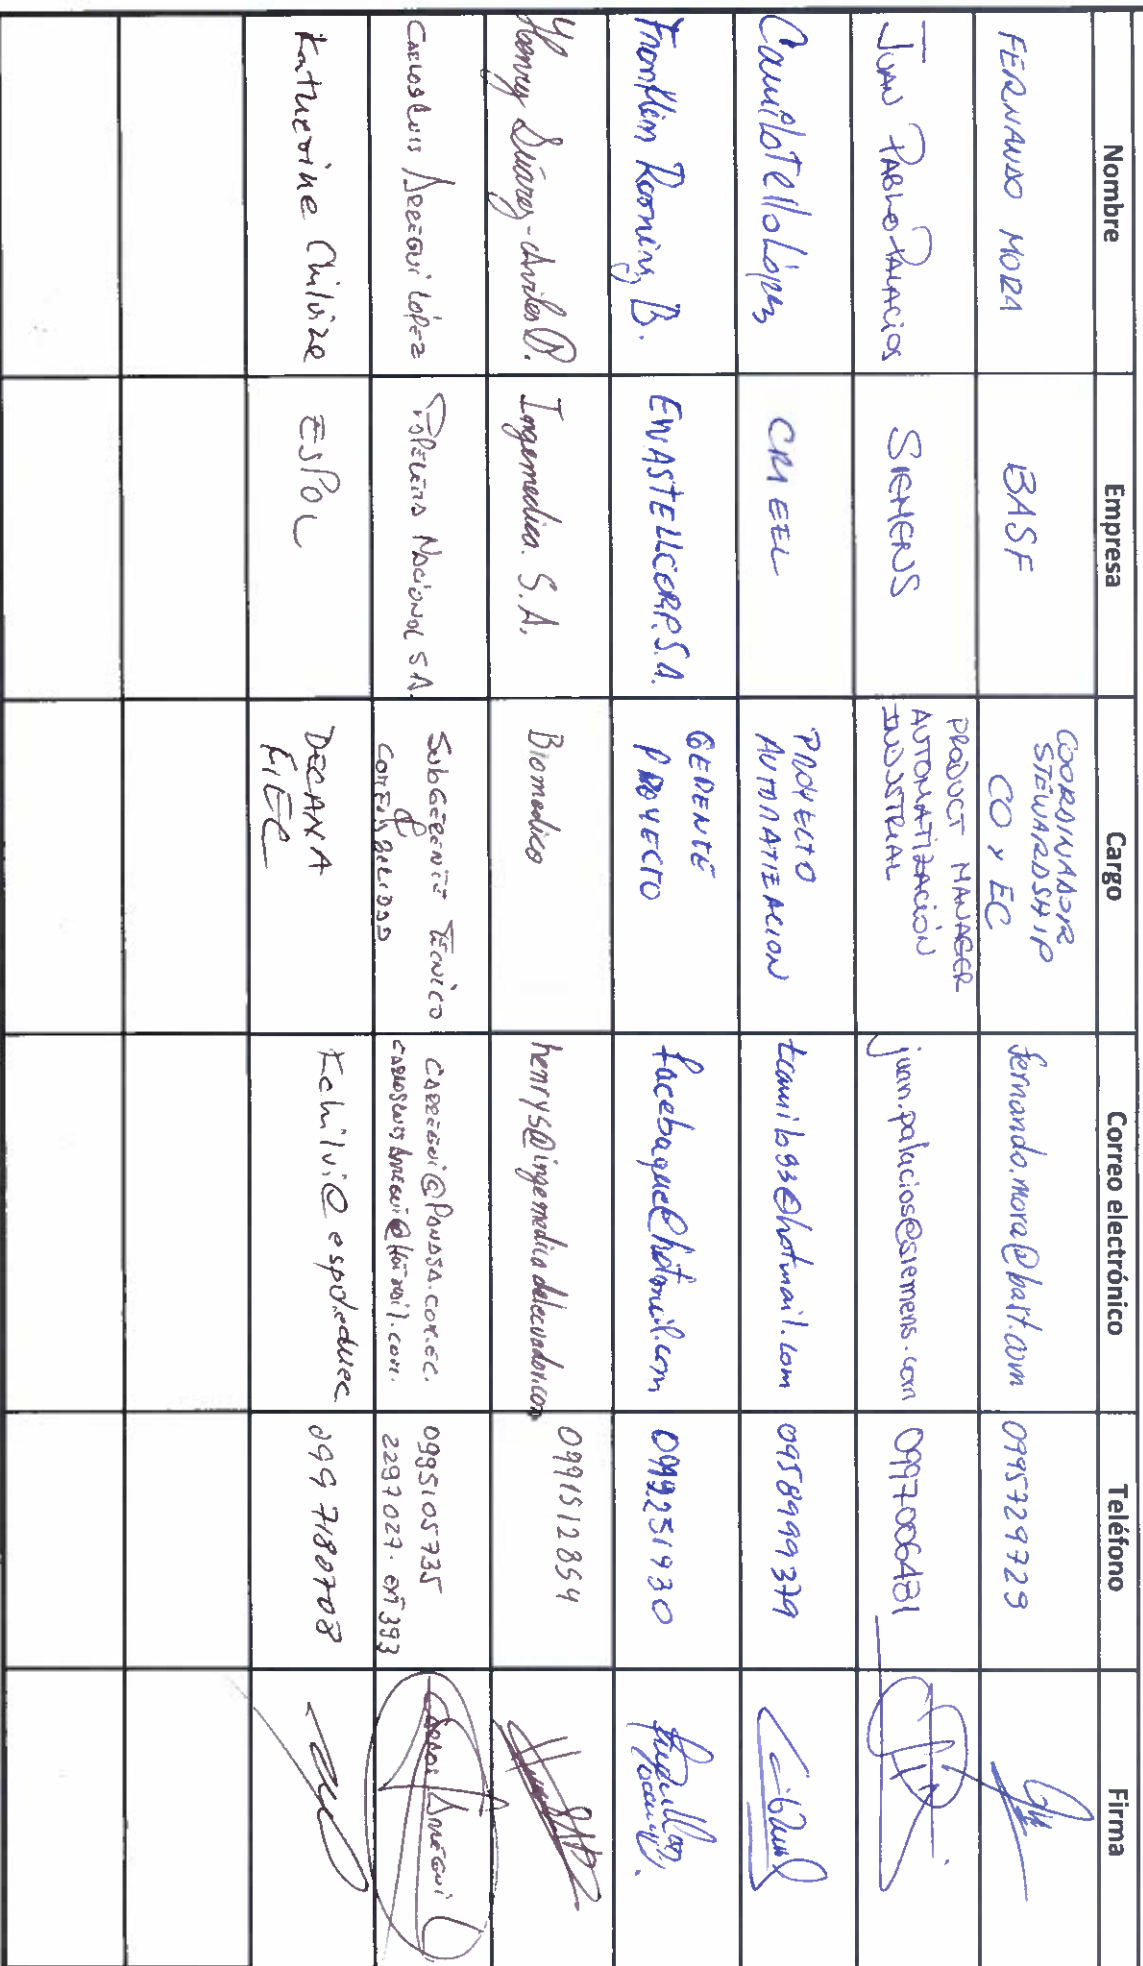 Nombre Empresa Cargo Correo electrónico Teléfono Firma
FERNANDO MORA BASF COORDINADOR
STEWARDSHIP
CO Y EC fernando.mora@basf.com 0995729729
JUAN PABLO PALACIOS SIEMENS PRODUCT MANAGER
AUTOMATIZACIÓN
INDUSTRIAL juan.palacios@siemens.com 0997006481
Camilo Tello López CRIEEL PROYECTO
AUTOMATIZACION tcamilo93@hotmail.com 0958999379
Franklin B. EWASTELLCORP.S.A. GERENTE
PROYECTO facebaque@hotmail.com 0992251930
Henry Suárez-Avilés Ingemedica. S.A. Biomedico henrys@ingemedicadelecuador.com 0991512854
Carlos Luis Arregui López Papelera Nacional S.A. SubGerente Técnico
Confiabilidad carregui@Panasa.com.ec.
carlosluisarregui@hotmail.com. 0995105735
2297027. ext 393
Carlos Arregui
Katherine Chiluiza ESPOL DECANA
FIEC kchilui@espol.edu.ec 0997180708